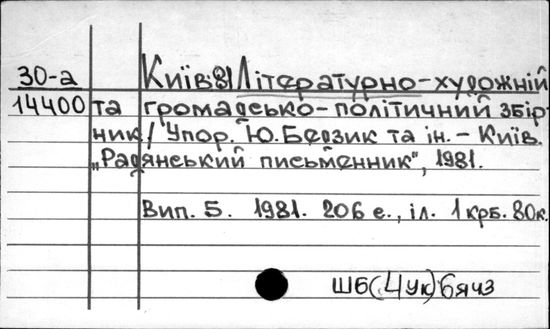 30-а Київ: 81 Літературно-художній
14400 та громадсько-політичний збір
ник. / Упор. Ю. Бедзик та ін. – Київ.
„Радянський письменник", 1981.
Вип. 5. 1981. 206 с., іл. 1 крб. 80к.
Ш6(4Ук)6я43